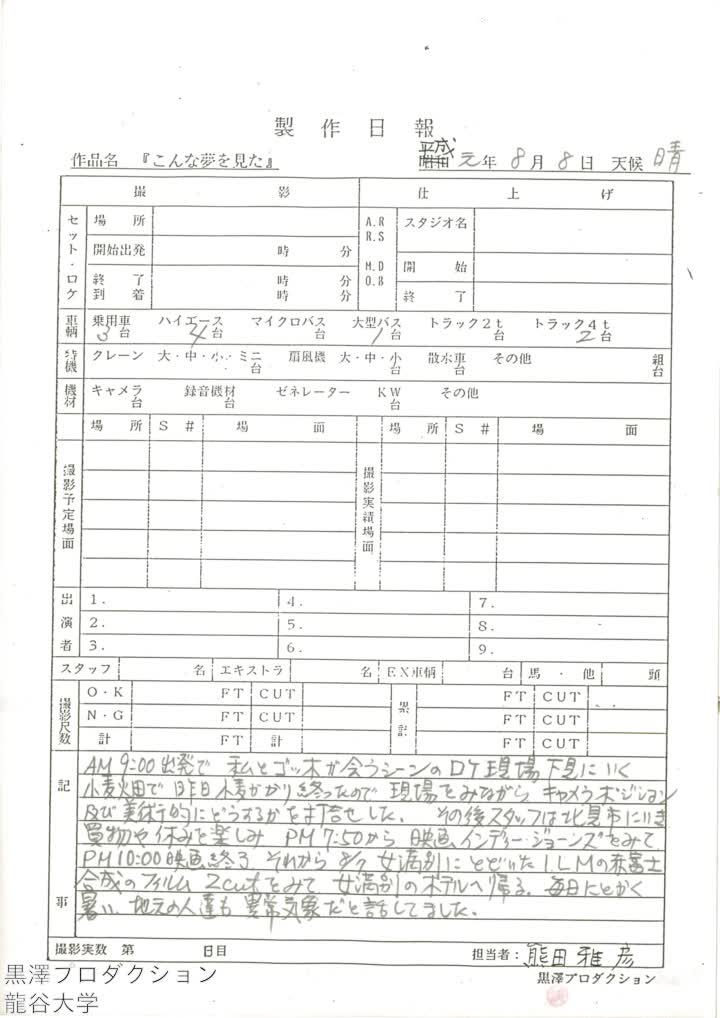 製作日報
作品名 『こんな夢を見た』 昭和 平成 元年 8月 8日 天候 晴
撮影 仕上げ
セット・ロケ 場所 A.R R.S スタジオ名
開始出発 時 分
終了 時 分 M.D O.B 開始
到着 時 分 終了
車輌 乗用車 3台 ハイエース 4台 マイクロバス 台 大型バス 1台 トラック2t 台 トラック4t 2台
特機 クレーン 大・中・小・ミニ 台 扇風機 大・中・小 台 散水車 台 その他 組 台
機材 キャメラ 台 録音機材 台 ゼネレーター KW 台 その他
場所 S# 場面 場所 S# 場面
撮影予定場面 撮影実績場面
出演者 1. 4. 7.
2. 5. 8.
3. 6. 9.
スタッフ 名 エキストラ 名 EX車輌 台 馬・他 頭
撮影尺数 O・K FT CUT 累計 FT CUT
N・G FT CUT FT CUT
計 FT 計 FT CUT
記事
AM 9:00出発で 私とゴッホが会うシーンのロケ現場下見にいく
小麦畑で昨日小麦がかり終ったので 現場をみながら キャメラポジション
及び美術的にどうするかを打合せした。 その後スタッフは北見市にいき
買物や休みを楽しみ PM 7:50から 映画インディー・ジョーンズをみて
PM10:00映画終る それから 8/7 女満別にとどいた ILMの赤富士
合成のフィルム 2cutをみて 女満別のホテルへ帰る。 毎日とにかく
暑い、地元の人達も異常気象だと話してました。
撮影実数 第 日目 担当者: 熊田雅彦
黒澤プロダクション
黒澤プロダクション
龍谷大学